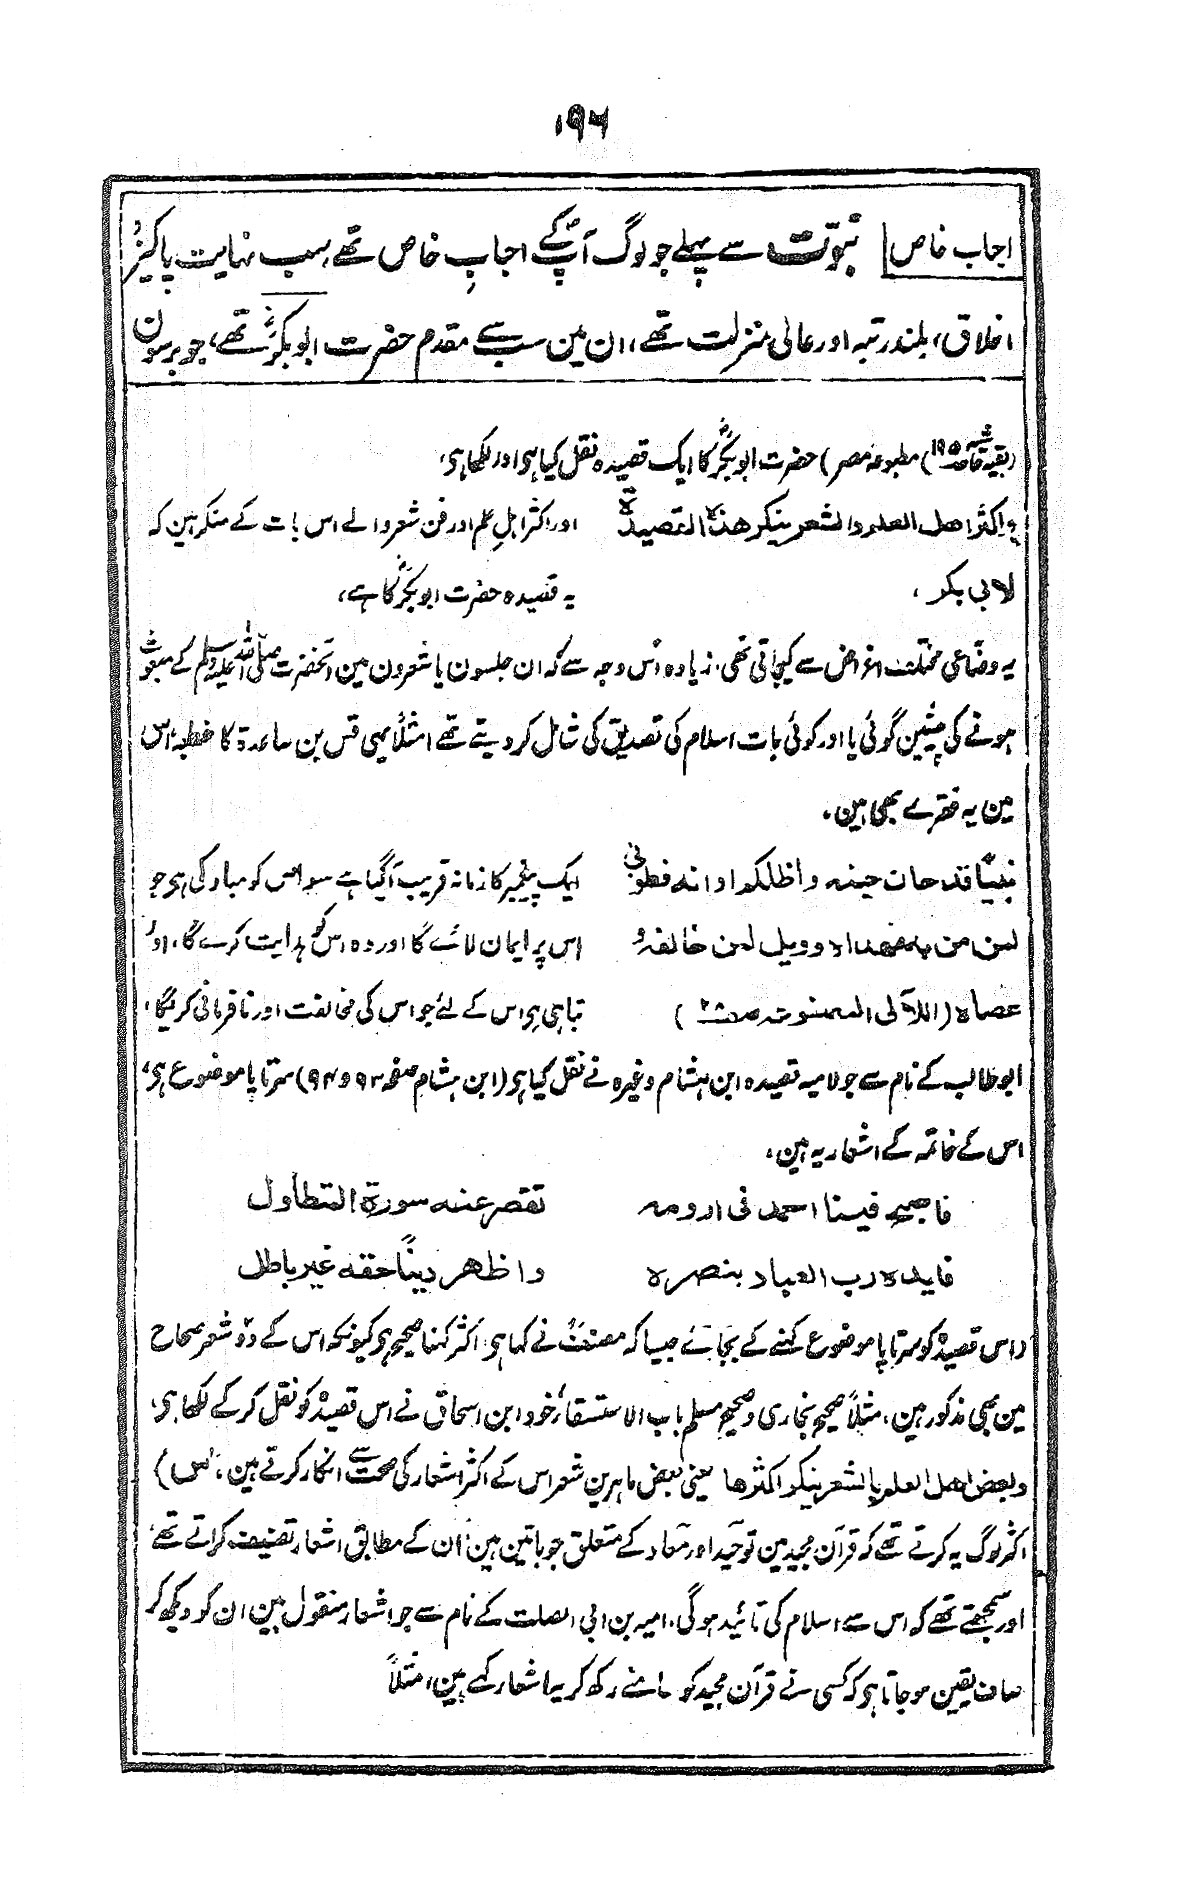 ۱۹۶
احباب خاص نبوّت سے پہلے جو لوگ آپؐ کے احبابِ خاص تھے، سب نہایت پاکیزہ
اخلاق، بلند رتبہ اور عالی منزلت تھے، ان مین سب سے مقدم حضرت ابو بکرؓ تھے، جو برسون
(بقیہ حاشیہ ۱۹۵) مطبوعہ مصر) حضرت ابو بکرؓ کا ایک قصیدہ نقل کیا ہی اور لکھا ہی،
واکثر اھل العلم والشعر ینکر ھذہ القصیدۃ اور اکثر اہلِ علم اور فن شعر والے اس بات کے منکر ہین کہ
لابی بکر، یہ قصیدہ حضرت ابو بکرؓ کا ہے،
یہ وضاعی مختلف اغراض سے کیجاتی تھی، زیادہ اس وجہ سے کہ ان جلسون یا شعرون مین آنحضرت صلی اللہ علیہ وسلم کے مبعوث
ہونے کی پیشین گوئی یا اور کوئی بات اسلام کی تصدیق کی شامل کر دیتے تھے، مثلًا یہی قس بن ساعدۃ کا خطبہ، اس
مین یہ فقرے بھی ہین،
نبیًا قد حان حینہ واظلکم اوانہ فطوبی ایک پیغمبر کا زمانہ قریب آگیا ہے سو اس کو مبارکی ہی جو
لمن من بہ فھداہ وویل لمن خالفہ و اس پر ایمان لائے گا اور وہ اس کو ہدایت کرے گا، اور
عصاہ (اللآلی المصنوعہ صفحہ ) تباہی ہی اس کے لئے جو اس کی مخالفت اور نافرمانی کریگا،
ابو طالب کے نام سے جو لامیہ قصیدہ ابن ہشام وغیرہ نے نقل کیا ہی (ابن ہشام صفحہ ۹۳ و ۹۴) سرتا پا موضوع ہی،
اس کے خاتمہ کے اشعار یہ ہین،
فاصبح فینا احمد فی ارومۃ تقصر عنہ سورۃ المتطاول
فایدہ رب العباد بنصرہ واظھر دینًا حقہ غیر باطل
(اس قصیدہ کو سرتا پا موضوع کہنے کے بجائے جیسا کہ مصنفؒ نے کہا ہی اکثر کہنا صحیح ہی کیونکہ اس کے دو شعر صحاح
مین بھی مذکور ہین، مثلًا صحیح بخاری و صحیح مسلم باب الاستسقاء، خود ابن اسحاق نے اس قصیدہ کو نقل کر کے لکھا ہی،
وبعض اھل العلم بالشعر ینکر اکثرھا یعنی بعض ماہرین شعر اس کے اکثر اشعار کی صحت سے انکار کرتے ہین، "س")
اکثر لوگ یہ کرتے تھے کہ قرآن مجید مین توحید اور معاد کے متعلق جو باتین ہین، ان کے مطابق اشعار تصنیف کراتے تھے
اور سمجھتے تھے کہ اس سے اسلام کی تائید ہو گی، امیہ بن ابی الصلت کے نام سے جو اشعار منقول ہین ان کو دیکھ کر
صاف یقین ہو جاتا ہی کہ کسی نے قرآن مجید کو سامنے رکھ کر یہ اشعار کہے ہین، مثلًا